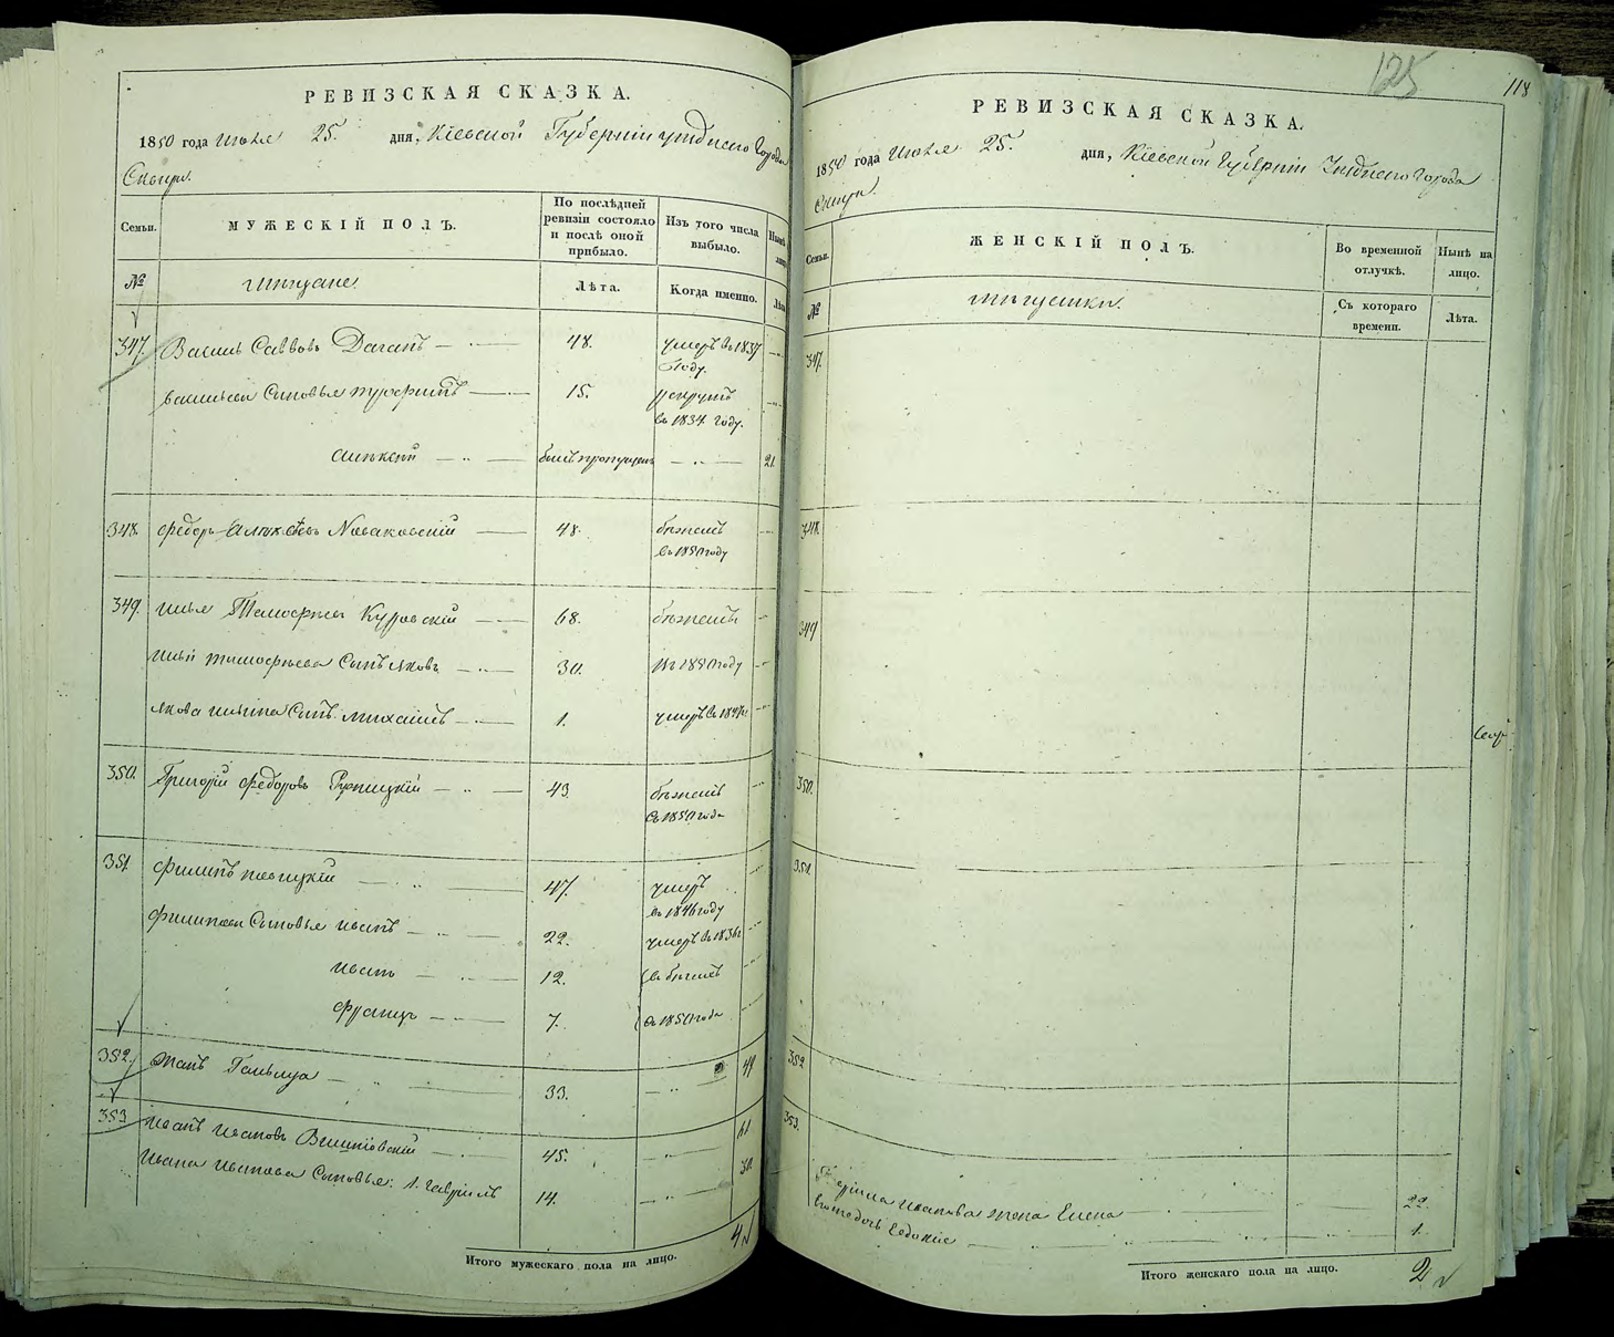 РЕВИЗСКАЯ СКАЗКА.
1850 года Июля 25. дня, Кіевской Губерніи уѣзднаго Города
Сквиры.
Семьи. МУЖЕСКІЙ ПОЛЪ. По послѣдней ревизіи состояло и послѣ оной прибыло. Изъ того числа выбыло. Нынѣ
№ Мѣщане Лѣта. Когда именно.
347. Василь Саввовъ 48. умеръ въ 1837 году.
Васильевы Сыновья Трофимъ 15. рекрутъ въ 1834 году.
Алексѣй былъ пропущенъ 21
348. Федоръ Алексѣевъ Новаковскій 48. бѣжалъ въ 1850 году
349. Илья Тимофеевъ Куровскій 68. бѣжалъ
Ильи Тимофѣева Сынъ Яковъ 30. въ 1850 году
Якова Ильина Сынъ Михаилъ 1. умеръ въ
350. Григорій Федоровъ 43. бѣжалъ съ 1850 года
351 Филипъ 47. умеръ въ 1846 году
Филиповы Сыновья Иванъ 22. умеръ въ 1836
Иванъ 12. въ бѣгахъ
Францъ 7. съ 1850 года
352. 33. 49
353 Иванъ Ивановъ 45. 61
Ивана Иванова Сыновья: 1. Гавріилъ 14. 30
Итого мужескаго пола на лицо. 4
125
118
РЕВИЗСКАЯ СКАЗКА.
1850 года Июля 25. дня, Кіевской Губерніи Уѣзднаго Города
Сквиры.
Семьи. ЖЕНСКІЙ ПОЛЪ. Во временной отлучкѣ. Нынѣ на лицо.
№ Мѣщанки. Съ котораго времени. Лѣта.
347.
348.
349
350.
351.
352
353.
Гавріила Иванова жена Елена 22.
Его дочь 1.
Итого женскаго пола на лицо. 2